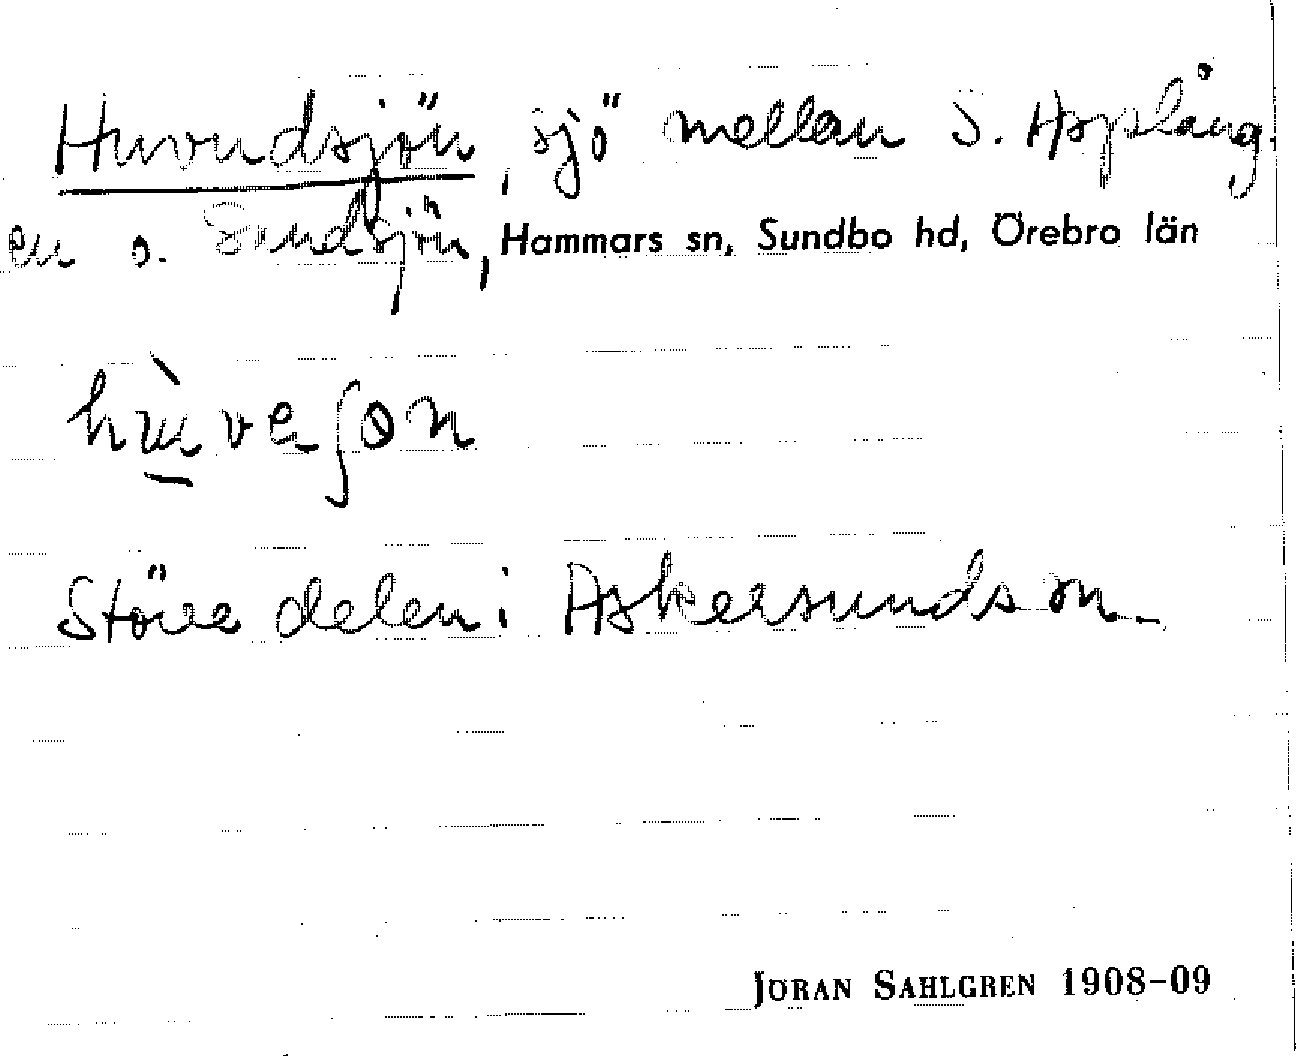 Huvudsjön, sjö mellan S. Asplång-
en o. Sundsjön, Hammars sn, Sundbo hd, Örebro län
Större delen i Askersunds sn.
JÖRAN SAHLGREN 1908-09